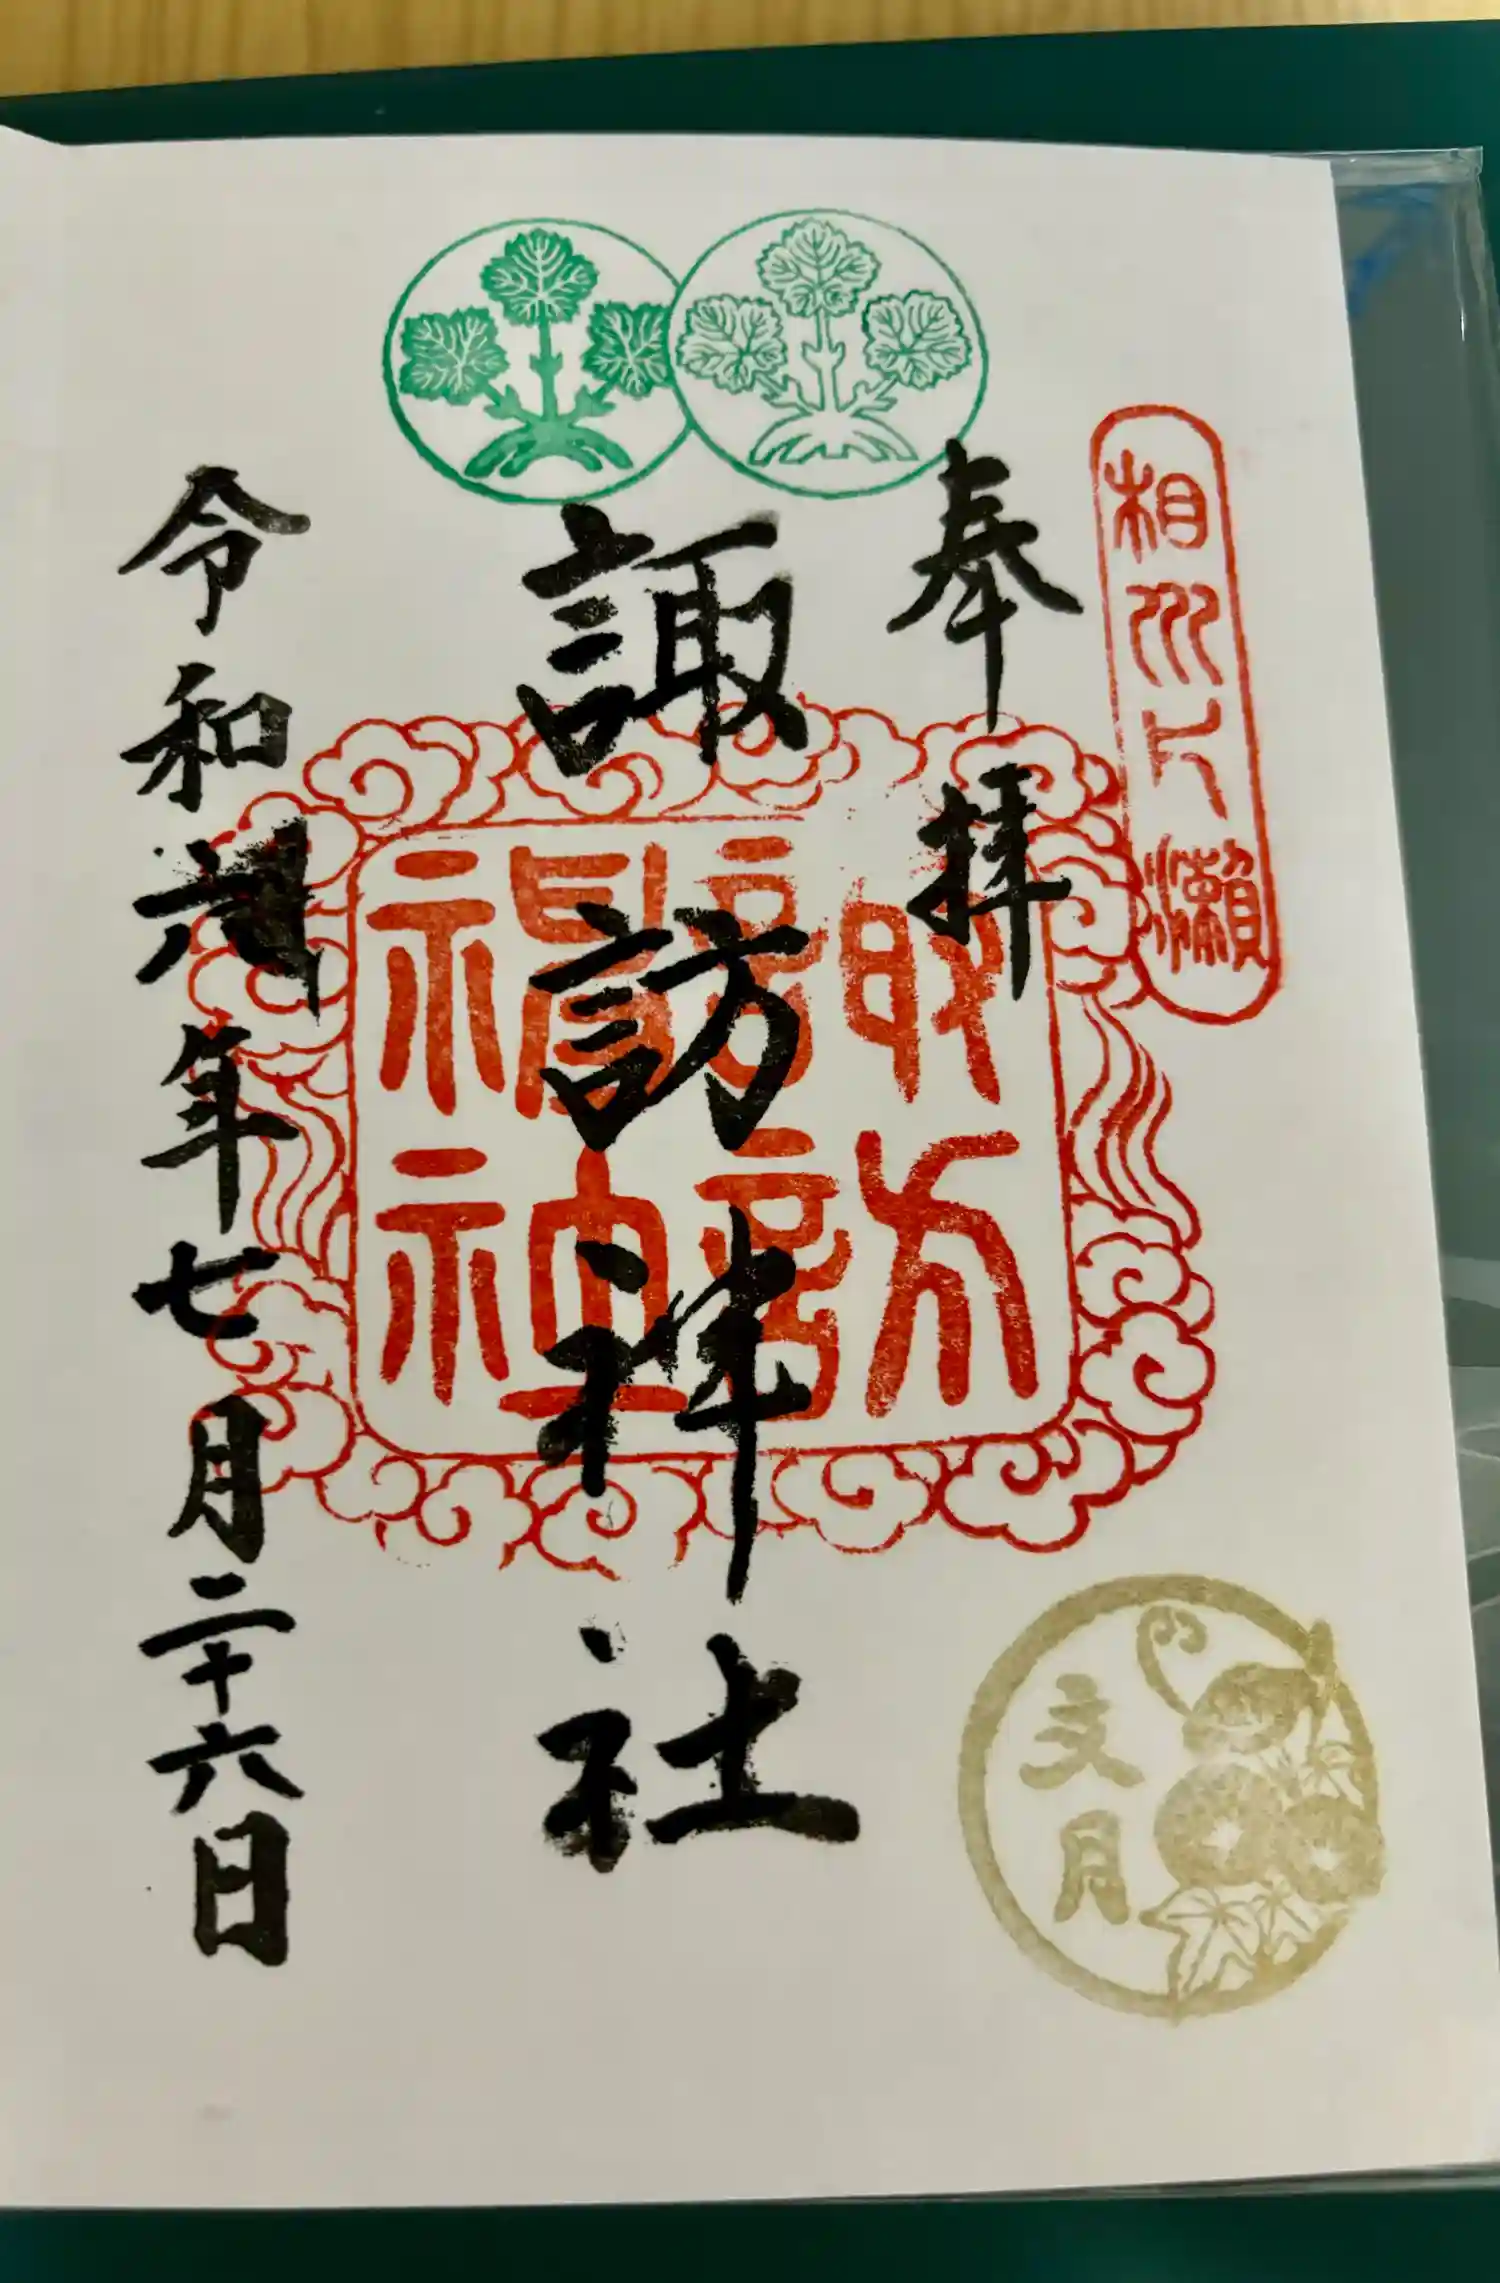 相州片瀬
奉拝
諏訪神社
諏訪
福神
文月
令和六年七月二十六日